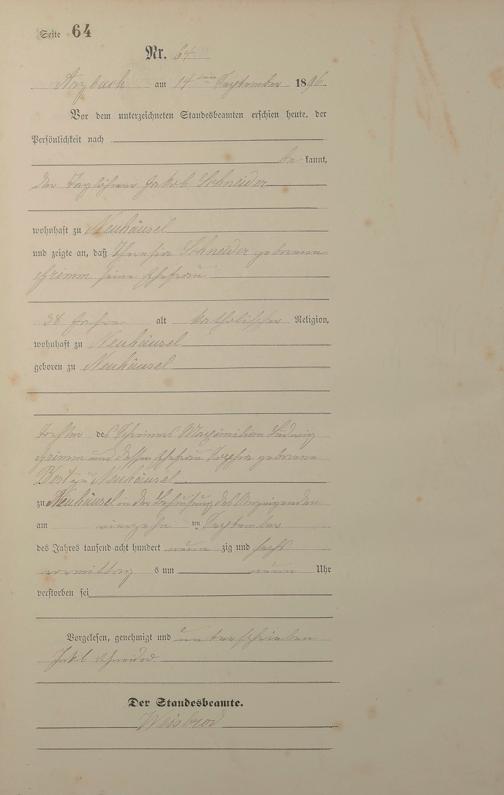 Seite 64
Nr. 64
Arzbach am 14ten September 1896.
Vor dem unterzeichneten Standesbeamten erschien heute, der
Persönlichkeit nach
be kannt,
der Taglöhner Jakob Schneider
wohnhaft zu Neuhäusel
und zeigte an, daß Theresia Schneider geborene
Grimm seine Ehefrau
38 Jahre alt katholischer Religion,
wohnhaft zu Neuhäusel
geboren zu Neuhäusel
Tochter des Schreiners Maximilian Ludwig
Grimm und dessen Ehefrau Sophia geborene
zu Neuhäusel
zu Neuhäusel in der Behausung des Anzeigenden
am vierzehn ten September
des Jahres tausend acht hundert neun zig und sechs
vormittag s um neun Uhr
verstorben sei
Vorgelesen, genehmigt und unterschrieben
Jakob Schneider
Der Standesbeamte.
Weisbrod